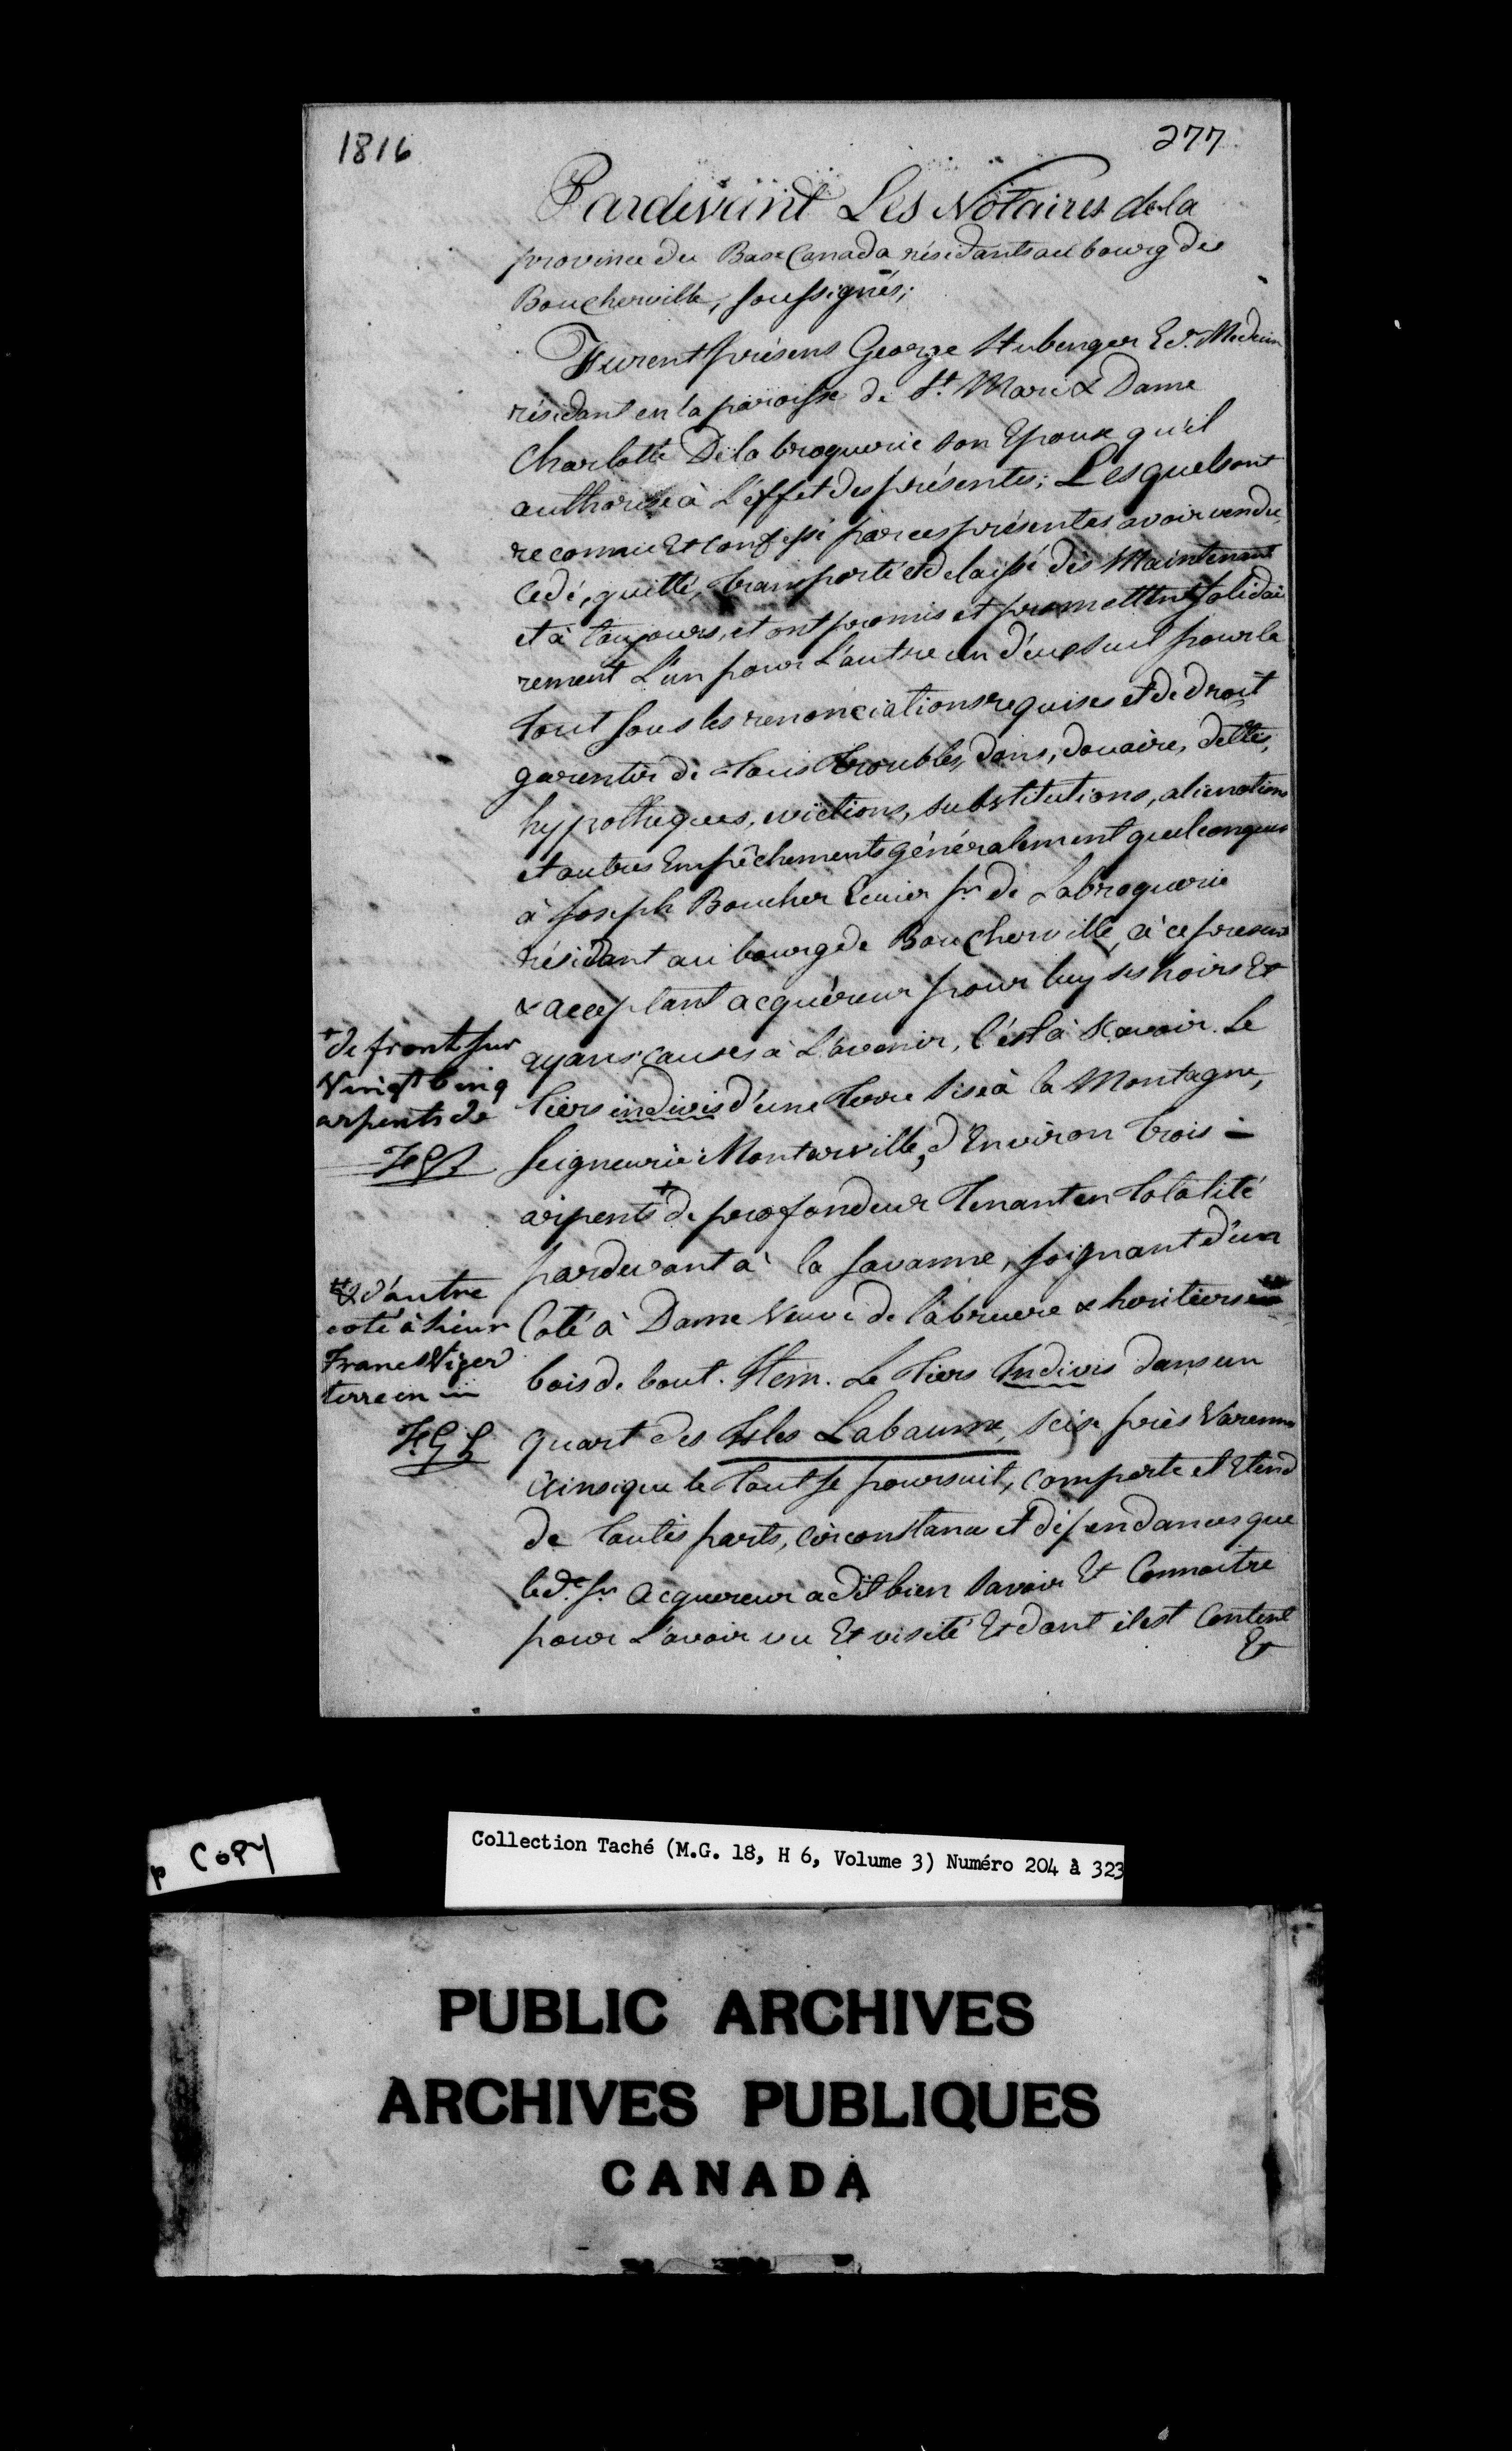 1816
277
Pardevant Les Notaires de la
province du Bas Canada résidants au bourg de
Boucherville, soussignés;
Furent présens George Stubenger Ec.r Medecin
résidant en la paroisse de St. Marc & Dame
Charlotte De la broquerie son Epouse qu'il
authorise à L'effet des présentes; Lesquels ont
reconnu Et confessé par ces présentes avoir vendu,
cedé, quitté, transporté et delaissé dès Maintenant
et à toujours, et ont promis et promettent solidai
rement L'un pour L'autre un d'eux seul pour le
tout sous les renonciations requises et de droit
garentir de tous troubles, dons, douaire, dettes,
hypotheques, evictions, substitutions, alienations
et autres Empêchements généralement quelconques
à Joseph Boucher Ecuier Sr. de Labroquerie
résidant au bourg de Boucherville, à ce present
& acceptant acquéreur pour luy ses hoirs Et
ayans causes à L'avenir, C'est à Scavoir. Le
tiers indivis d'une terre sise à la Montagne,
Seigneurie Montarville, d'Environ trois
arpents + de profondeur tenant en totalité
pardevant à la savanne, joignant d'un
Coté à Dame Veuve de labruere & heritiers
bois de bout. Item. Le tiers Indivis dans un
quart des Isles Labaume, scise près Varennes
Ainsi que le tout se poursuit, comporte et Etend
de toutes parts, circonstance et dépendances que
led.t Sr. Acquereur a dit bien savoir Et Connoitre
pour L'avoir vu Et visité Et dont il est Content
Et
+ de front sur
Vingt Cinq
arpents de
& d'autre
coté à sieur
Francs Viger
terre en
COPY
Collection Taché (M.G. 18, H 6, Volume 3) Numéro 204 à 323
PUBLIC ARCHIVES
ARCHIVES PUBLIQUES
CANADA